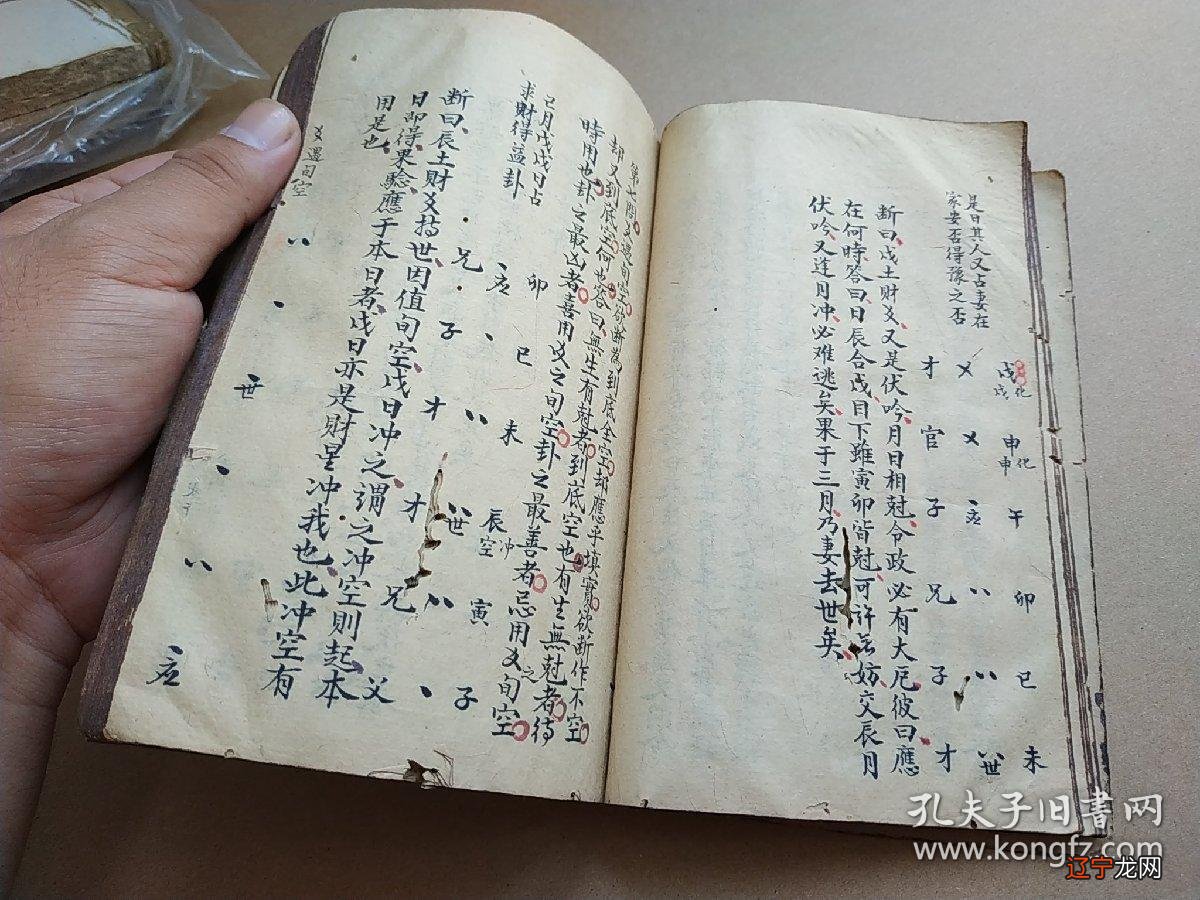 是日其人又占妻在
家安否得豫之否
戌化戌 申化申 午 卯 巳 未
乂 乂 应 世
才 官 子 兄 子 才
断曰戌土財爻又是伏吟月日相尅令政必有大厄彼曰應
在何時答曰日辰合戌目下雖寅卯皆尅可許无妨交辰月
伏吟又逢月冲必难逃矣果于三月乃妻去世矣
第七問爻遇旬空
却又到底空何也答曰無生有尅者到底空也有生無尅者待
時用也卦之最凶者喜用爻之旬空卦之最善者忌用爻之旬空
巳月戊戌日占
求財得益卦
卯 巳 未 辰空冲 寅 子
应 世
兄 子 才 才 兄 父
断曰辰土財爻持世因值旬空戌日冲之謂之冲空則起本
日即得果驗應于本日者戌日亦是財星冲我也此冲空有
用是也
爻遇旬空
世
应
孔夫子旧書网
www.kongfz.com
辽宁龙网